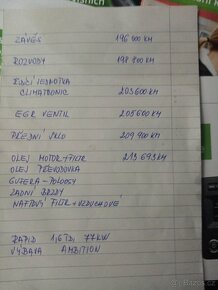 ZÁVĚS 196 000 KM
ROZVODY 198 800 KM
ŘÍDÍCÍ JEDNOTKA
CLIMATRONIC 203 600 KM
EGR VENTIL 205 600 KM
PŘEDNÍ SKLO 209 900 KM
OLEJ MOTOR + FILTR 213 693 KM
OLEJ PŘEVODOVKA
GUFERA - POLOOSY
ZADNÍ BRZDY
NAFTOVÝ FILTR + VZDUCHOVÉ
RAPID 1,6 TDI 77 KW
VÝBAVA AMBITION